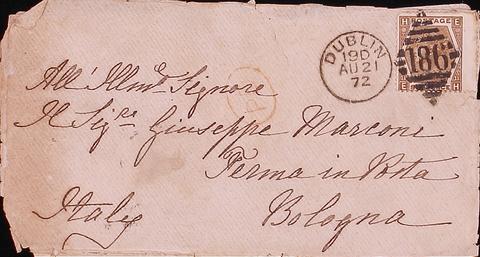 DUBLIN
19D
AU 21
72
H POSTAGE E
186
E H
PD
All' Illmo Signore
Il Sigre Giuseppe Marconi
Ferma in Posta
Italy Bologna